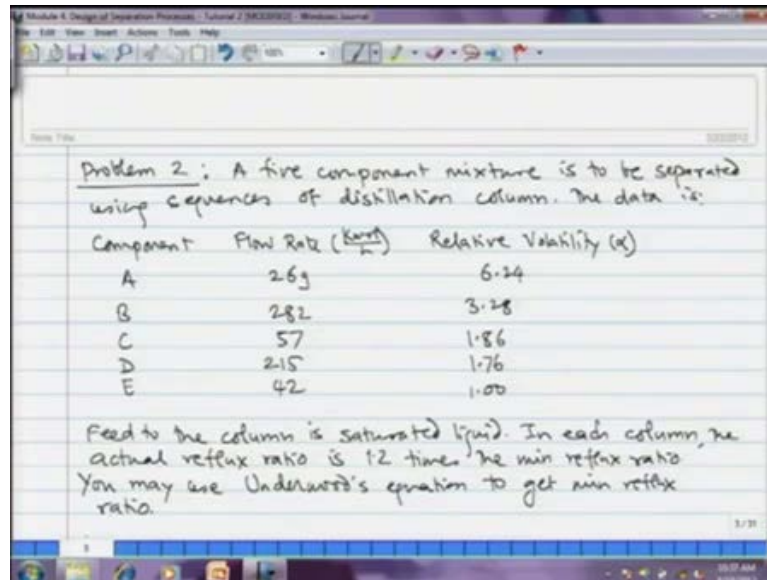 Module 4: Design of Separation Processes - Tutorial 2 - Windows Journal
File Edit View Insert Actions Tools Help
Note Title
Problem 2 : A five component mixture is to be separated
using sequences of distillation column. The data is:
Component Flow Rate (Kmol/h) Relative Volatility (α)
A 269 6.24
B 282 3.28
C 57 1.86
D 215 1.76
E 42 1.00
Feed to the column is saturated liquid. In each column, the
actual reflux ratio is 1.2 times the min reflux ratio
You may use Underwood's equation to get min reflux
ratio.
3/31
3
10:37 AM